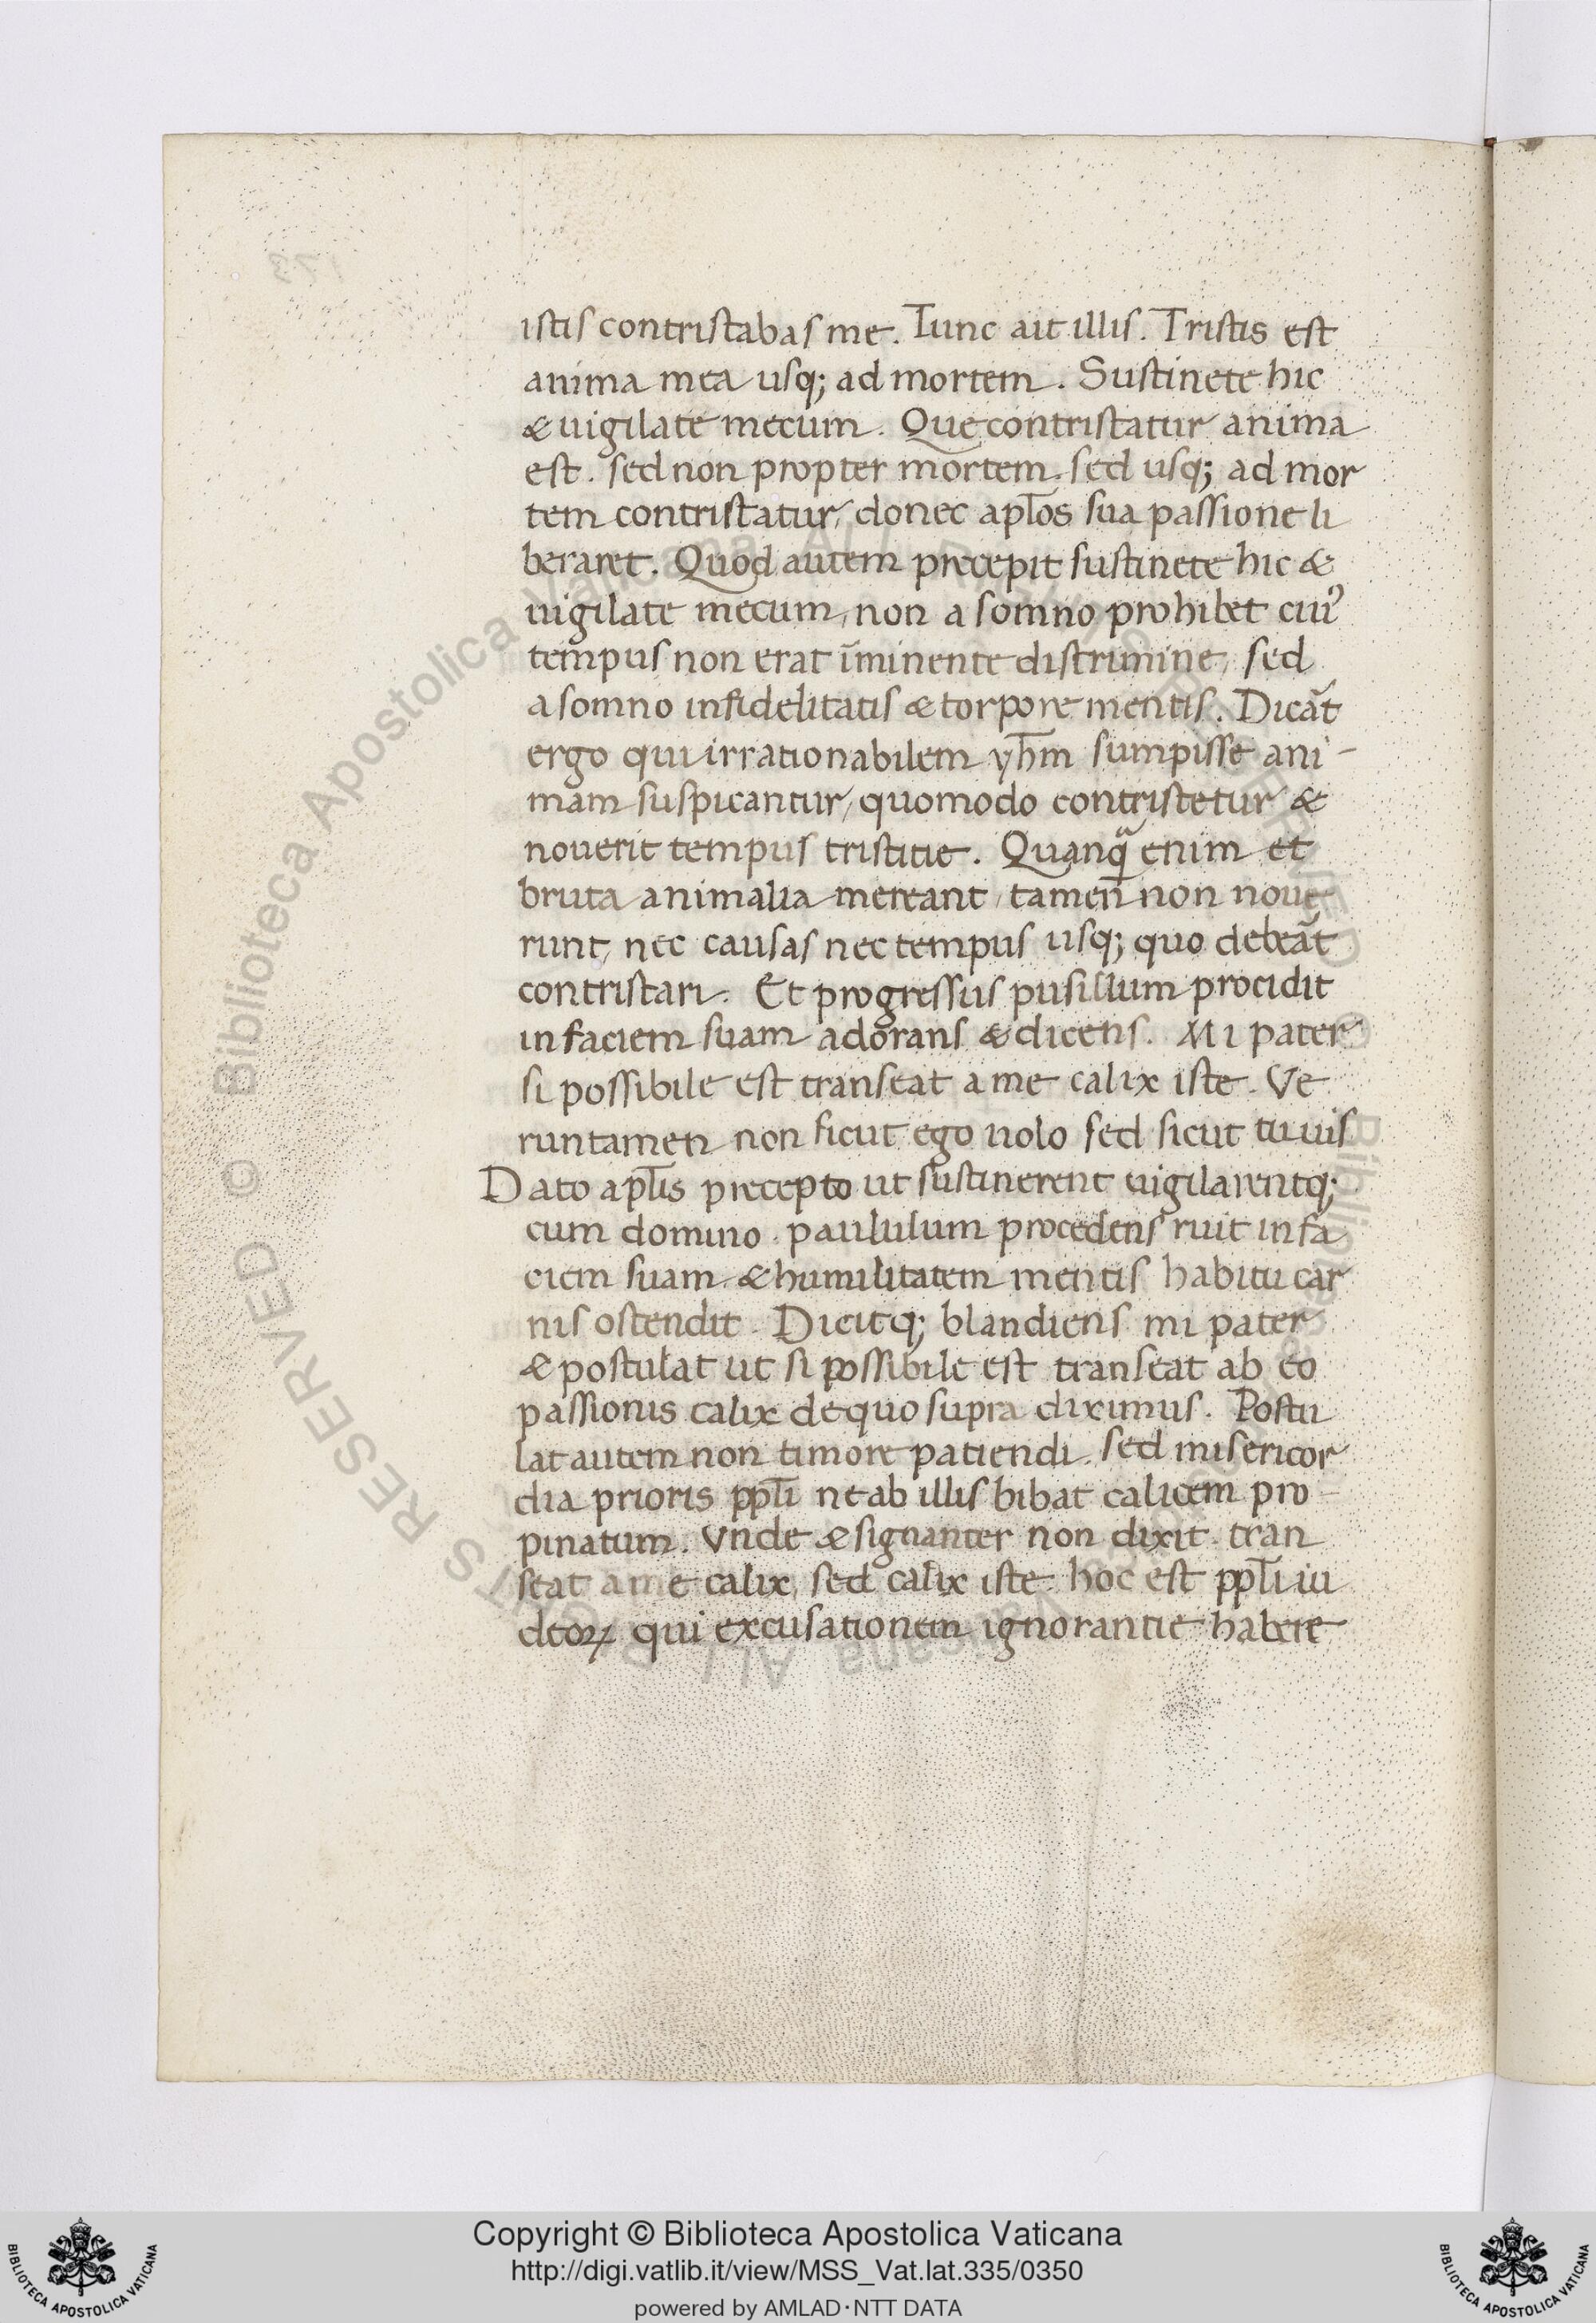 istis contristabas me. Tunc ait illis. Tristis est
anima mea usq; ad mortem. Sustinete hic
& uigilate mecum. Que contristatur anima
est. sed non propter mortem. sed usq; ad mor
tem contristatur, donec apl̅os sua passione li
beraret. Quod autem precepit sustinete hic &
uigilate mecum, non a somno prohibet cuiꝰ
tempus non erat īminente discrimine, sed
a somno infidelitatis & torpore mentis. Dicāt
ergo qui irrationabilem yh̅m sumpisse ani-
mam suspicantur, quomodo contristetur &
nouerit tempus tristitie. Quanqᷓ enim et
bruta animalia mereant, tamen̅ non noue
runt, nec causas nec tempus usq; quo debeāt
contristari. Et progressus pusillum procidit
in faciem suam adorans & dicens. Mi pater
si possibile est transeat a me calix iste. Ve
runtamen non sicut ego uolo sed sicut tu uis
Dato apl̅is precepto ut sustinerent uigilarentq;
cum domino. paululum procedens ruit in fa
ciem suam. & humilitatem mentis habitu car
nis ostendit. Dicitq; blandiens mi pater
& postulat ut si possibile est transeat ab eo
passionis calix de quo supra diximus. Postu
lat autem non timore patiendi. sed misericor
dia prioris ppl̅i ne ab illis bibat calicem pro-
pinatum. Vnde & signanter non dixit. tran
seat a me calix, sed calix iste. hoc est ppl̅i iu
deoꝝ qui excusationem ignorantie habere
Copyright © Biblioteca Apostolica Vaticana
http://digi.vatlib.it/view/MSS_Vat.lat.335/0350
powered by AMLAD·NTT DATA
BIBLIOTECA APOSTOLICA VATICANA
BIBLIOTECA APOSTOLICA VATICANA